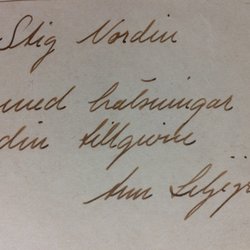 Stig Nordin
med hälsningar
din tillgivne